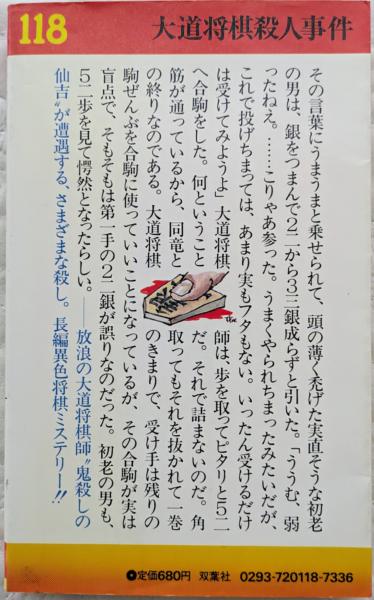 118
大道将棋殺人事件
その言葉にうまうまと乗せられて、頭の薄く禿げた実直そうな初老
の男は、銀をつまんで2二から3三銀成らずと引いた。「ううむ、弱
ったねえ。……こりゃあ参った。うまくやられちまったみたいだが、
これで投げちまっては、あまり実もフタもない。いったん受けるだけ
は受けてみようよ」大道将棋師は、歩を取ってピタリと5二
へ合駒をした。何ということだ。それで詰まないのだ。角
筋が通っているから、同竜と取ってもそれを抜かれて一巻
の終りなのである。大道将棋のきまりで、受け手は残りの
駒ぜんぶを合駒に使っていいことになっているが、その合駒が実は
盲点で、そもそもは第一手の2二銀が誤りなのだった。初老の男も、
5二歩を見て愕然となったらしい。――放浪の大道将棋師〝鬼殺しの
仙吉〟が遭遇する、さまざまな殺し。長編異色将棋ミステリー!!
定価680円 双葉社 0293-720118-7336